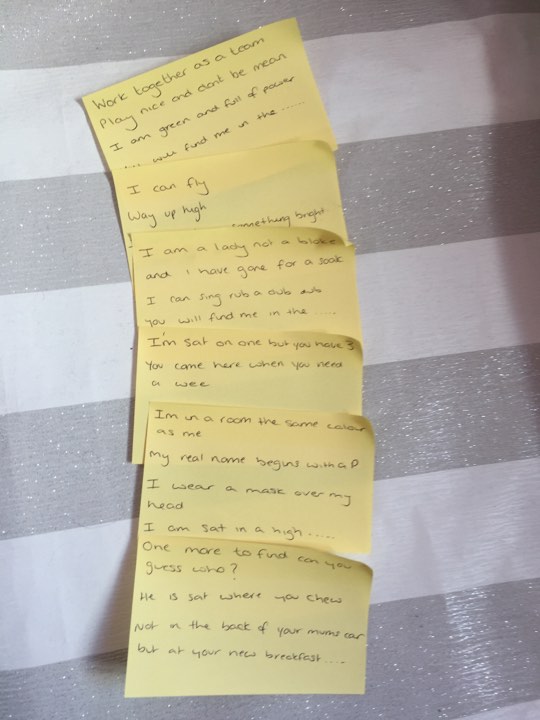 Work together as a team
Play nice and dont be mean
I am green and full of power
.... will find me in the ......
I can fly
Way up high
something bright
I am a lady not a bloke
and I have gone for a soak
I can sing rub a dub dub
you will find me in the .....
I'm sat on one but you have 3
You come here when you need
a wee
Im in a room the same colour
as me
My real name begins with a P
I wear a mask over my
head
I am sat in a high .....
One more to find can you
guess who?
He is sat where you chew
Not in the back of your mums car
but at your new breakfast ....